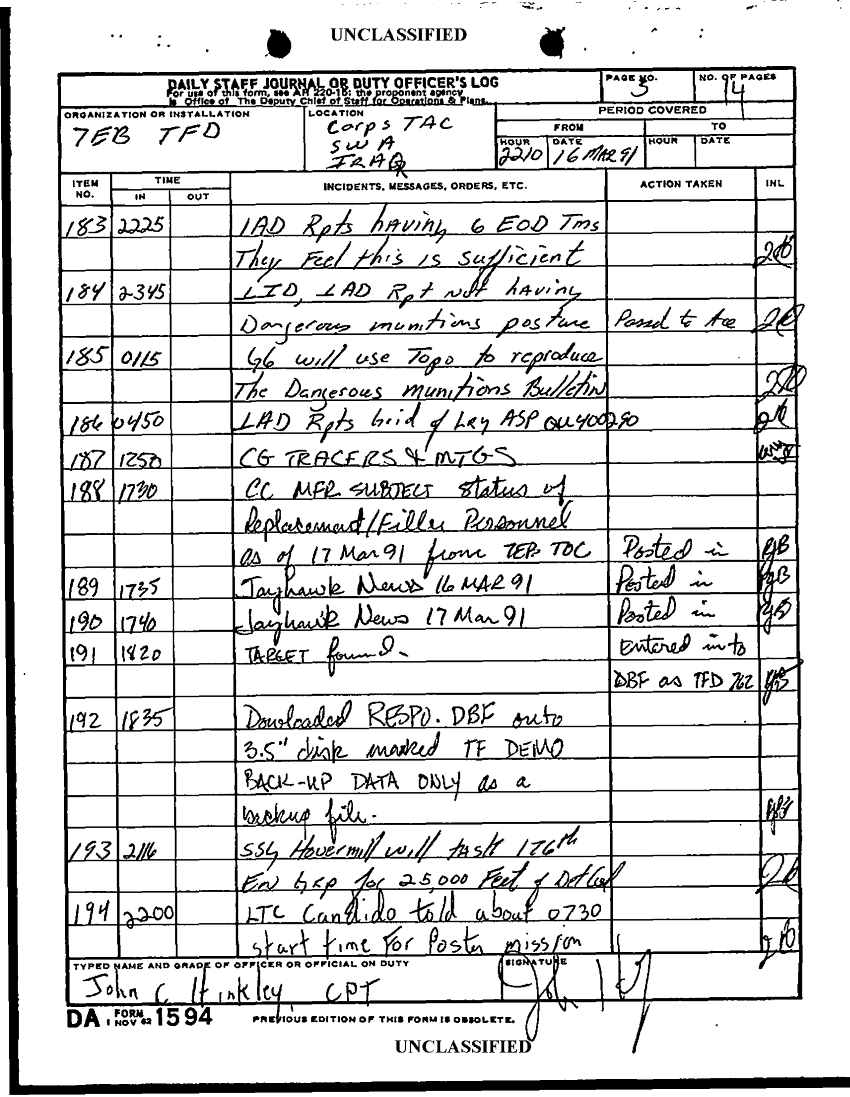 UNCLASSIFIED
DAILY STAFF JOURNAL OR DUTY OFFICER'S LOG
For use of this form, see AR 220-15; the proponent agency
is Office of The Deputy Chief of Staff for Operations & Plans.
PAGE NO.
3
NO. OF PAGES
14
ORGANIZATION OR INSTALLATION
7EB TFD
LOCATION
Corps TAC
SWA
IRAQ
PERIOD COVERED
FROM
TO
HOUR
2210
DATE
16 MAR 91
HOUR
DATE
ITEM NO.
TIME
IN
OUT
INCIDENTS, MESSAGES, ORDERS, ETC.
ACTION TAKEN
INL
183 2225 1AD Rpts having 6 EOD Tms
They Feel this is sufficient
184 2345 1ID, 1AD Rpt not having
Dangerous munitions posture Passed to
185 0115 G6 will use Topo to reproduce
The Dangerous munitions Bulletin
186 0450 1AD Rpts of ASP QU400290
187 1250 CG TRACERS & MTGS
188 1730 CC MFR SUBJECT Status of
Replacement/Filler Personnel
as of 17 Mar 91 from 7EB TOC Posted in RJB
189 1735 Jayhawk News 16 MAR 91 Posted in RJB
190 1740 Jayhawk News 17 Mar 91 Posted in RJB
191 1820 TARGET found. Entered into
DBF as TFD 762 RJB
192 1835 Dowloaded RESPO.DBF onto
3.5" disk marked TF DEMO
BACK-UP DATA ONLY as a
backup file. RJB
193 2116 SSG will task 176th
En Grp for 25,000 Feet of Det Cord
194 2200 LTC Candido told about 0730
start time For Poster mission
TYPED NAME AND GRADE OF OFFICER OR OFFICIAL ON DUTY
John C Hinkley, CPT
SIGNATURE
DA FORM 1 NOV 62 1594
PREVIOUS EDITION OF THIS FORM IS OBSOLETE.
UNCLASSIFIED